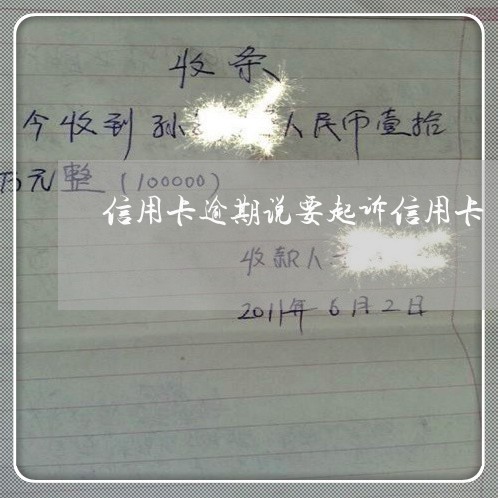 收条
今收到孙 人民币壹拾
万元整（100000）
信用卡逾期说要起诉信用卡
收款人
2011年6月2日